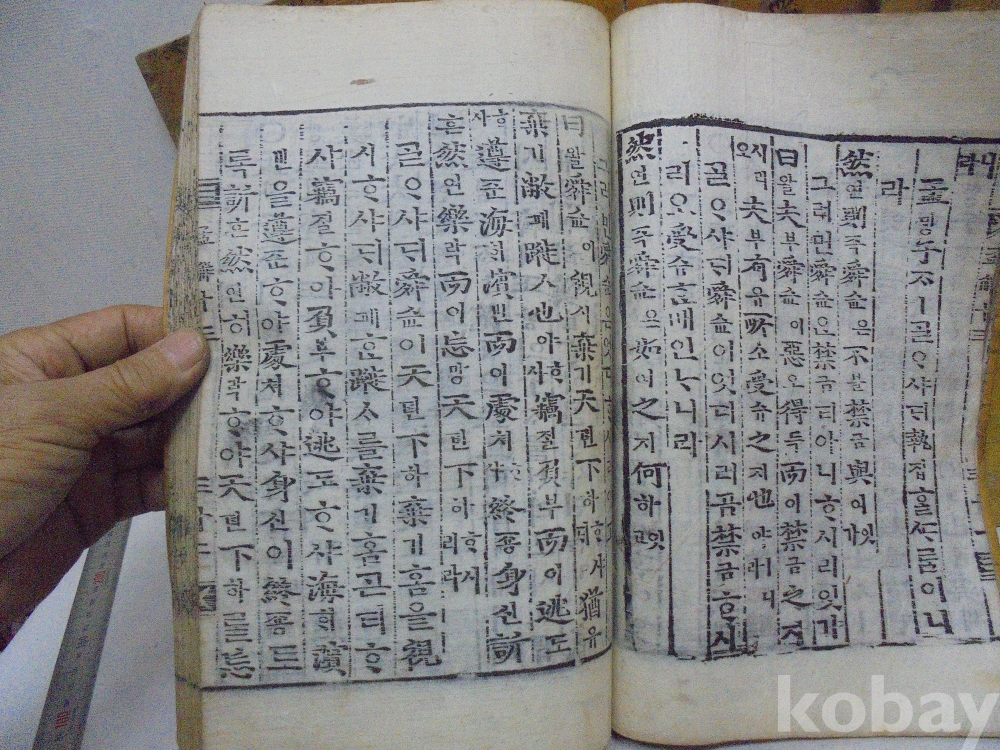 孟ᄆᆡᆼ子ᄌᆞㅣ ᄀᆞᆯᄋᆞ샤ᄃᆡ 執집ᄒᆞᆯ ᄯᆞᄅᆞᆷ이니
라
然연則즉舜슌은不블禁금與여잇가
그러면 舜슌은 禁금티 아니ᄒᆞ시리잇가
曰왈夫부舜슌이惡오得득而이禁금之지
시리오夫부有유所소受슈之지也야ㅣ러니
ᄀᆞᆯᄋᆞ샤ᄃᆡ 舜슌이 엇디 시러곰 禁금ᄒᆞ시
리오 受슈ᄒᆞᆫ 배 인ᄂᆞ니라
然연則즉舜슌은如여之지何하ㅣ잇고
曰왈舜슌이視시棄기天텬下하ᄒᆞ샤ᄃᆡ猶유
棄기敝폐蹝사也야ᄒᆞ샤竊졀負부而이逃도
ᄒᆞ샤遵준海ᄒᆡ濱빈而이處쳐ᄒᆞ샤終죵身신訢
흔然연樂락而이忘망天텬下하ᄒᆞ시리라
ᄀᆞᆯᄋᆞ샤ᄃᆡ 舜슌이 天텬下하 棄기홈을 視
시ᄒᆞ샤ᄃᆡ 敝폐ᄒᆞᆫ 蹝사를 棄기홈ᄀᆞ티 ᄒᆞ
샤 竊졀ᄒᆞ야 負부ᄒᆞ야 逃도ᄒᆞ샤 海ᄒᆡ濱
빈을 遵준ᄒᆞ야 處쳐ᄒᆞ샤 身신이 終죵도
록 訢흔然연히 樂락ᄒᆞ야 天텬下하를 忘
kobay